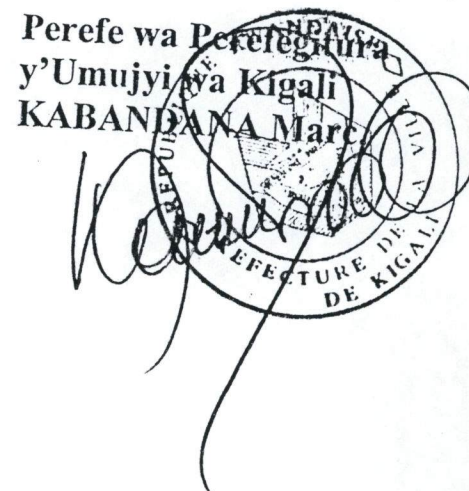 Perefe wa Perefegitura
y'Umujyi wa Kigali
KABANDANA Marc
REPUBLIQUE RWANDAISE
PREFECTURE DE LA VILLE
DE KIGALI